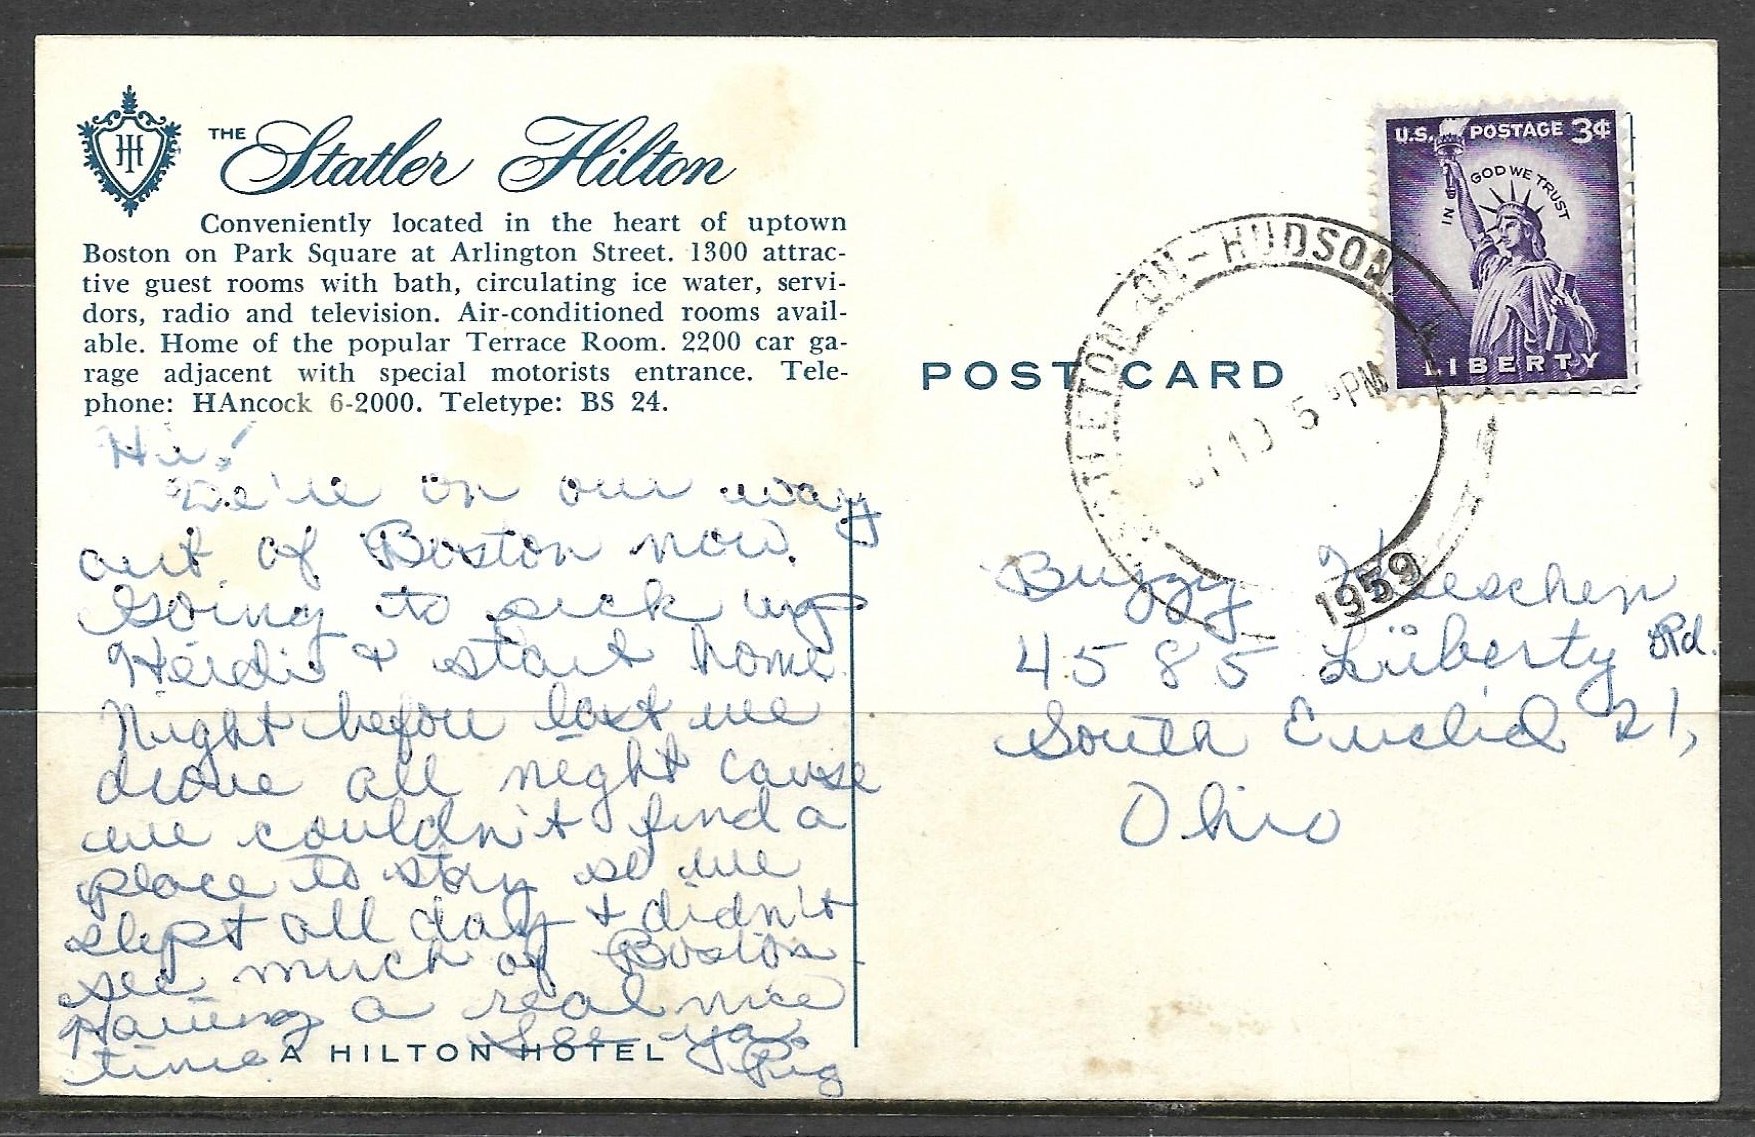 THE Statler Hilton
Conveniently located in the heart of uptown
Boston on Park Square at Arlington Street. 1300 attrac-
tive guest rooms with bath, circulating ice water, servi-
dors, radio and television. Air-conditioned rooms avail-
able. Home of the popular Terrace Room. 2200 car ga-
rage adjacent with special motorists entrance. Tele-
phone: HAncock 6-2000. Teletype: BS 24.
Hi!
We're on our way
out of Boston now.
Going to pick up
Heidi & start home.
Night before last we
drove all night cause
we couldn't find a
place to stay so we
slept all day & didn't
see much of Boston
Having a real nice
time. See ya.
Peg
A HILTON HOTEL
POST CARD
U.S. POSTAGE 3¢
IN GOD WE TRUST
LIBERTY
ETON-ON-HUDSON
5 PM
1959
Buzzy
4585 Liberty Rd.
South Euclid 21,
Ohio